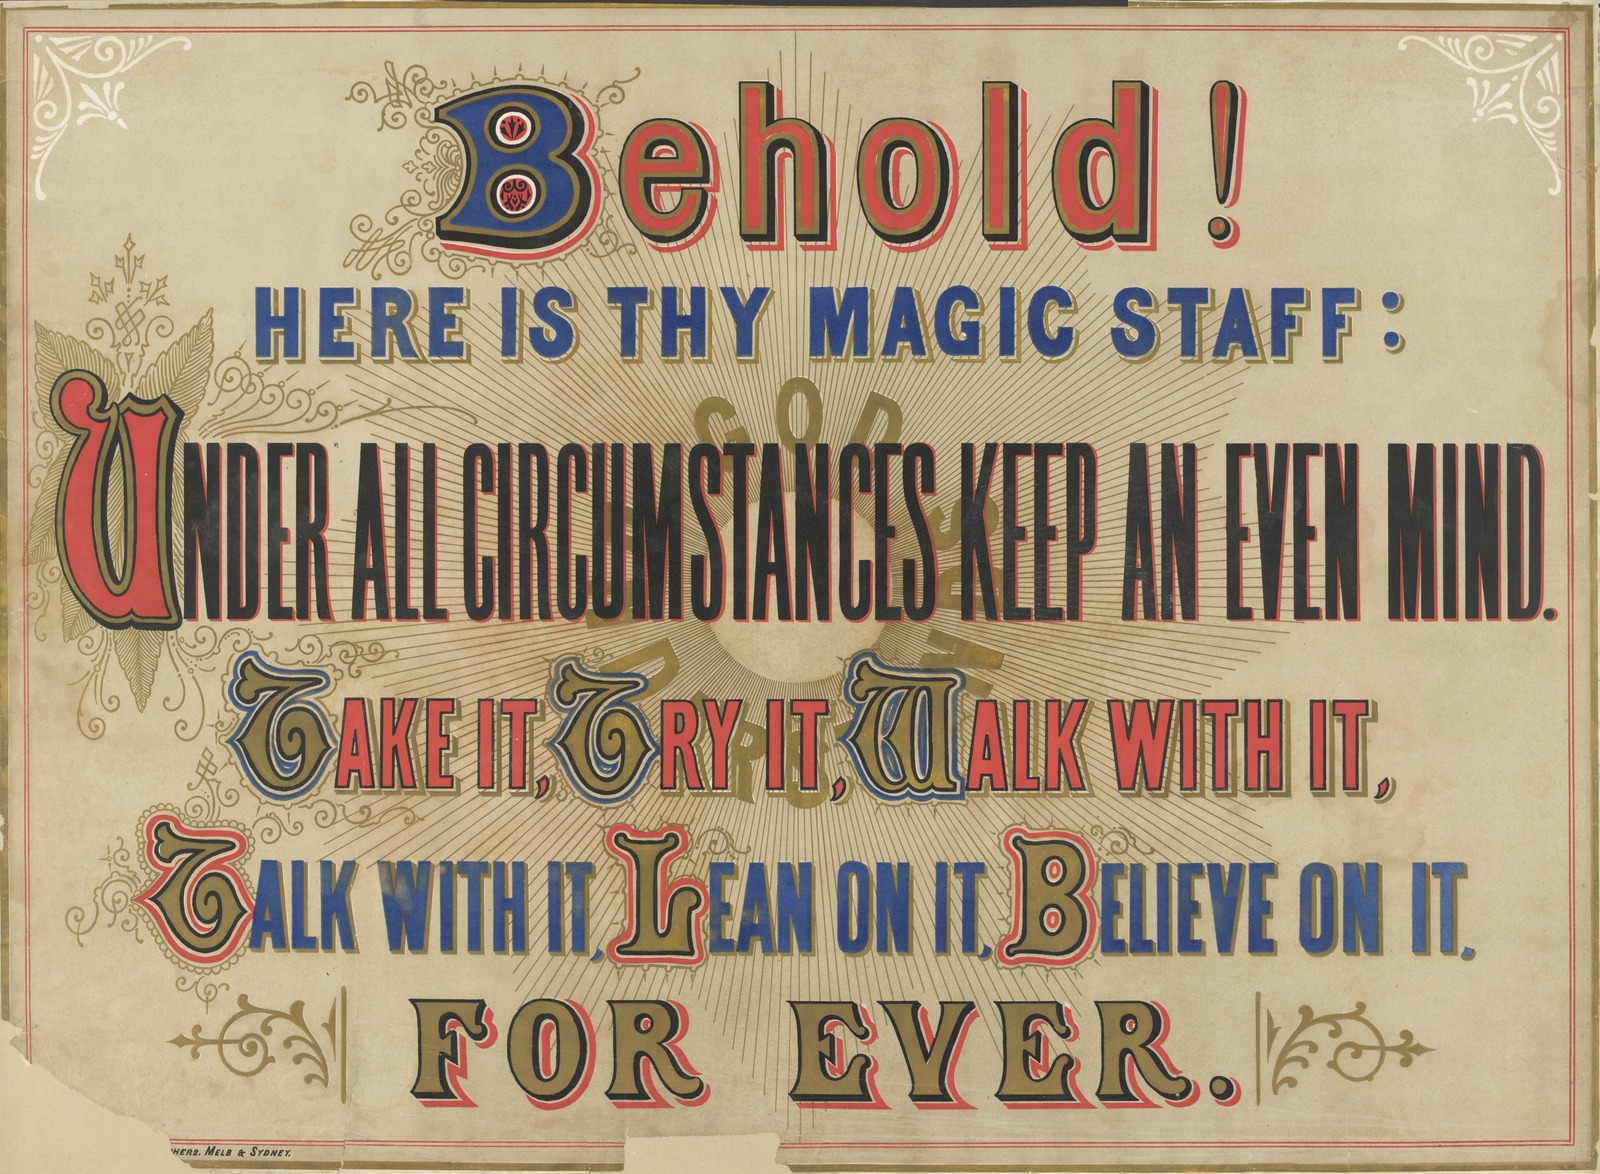 Behold!
HERE IS THY MAGIC STAFF:
GOD
UNDER ALL CIRCUMSTANCES KEEP AN EVEN MIND.
TAKE IT, TRY IT, WALK WITH IT,
TALK WITH IT, LEAN ON IT, BELIEVE ON IT,
FOR EVER.
HERS. MELB & SYDNEY.